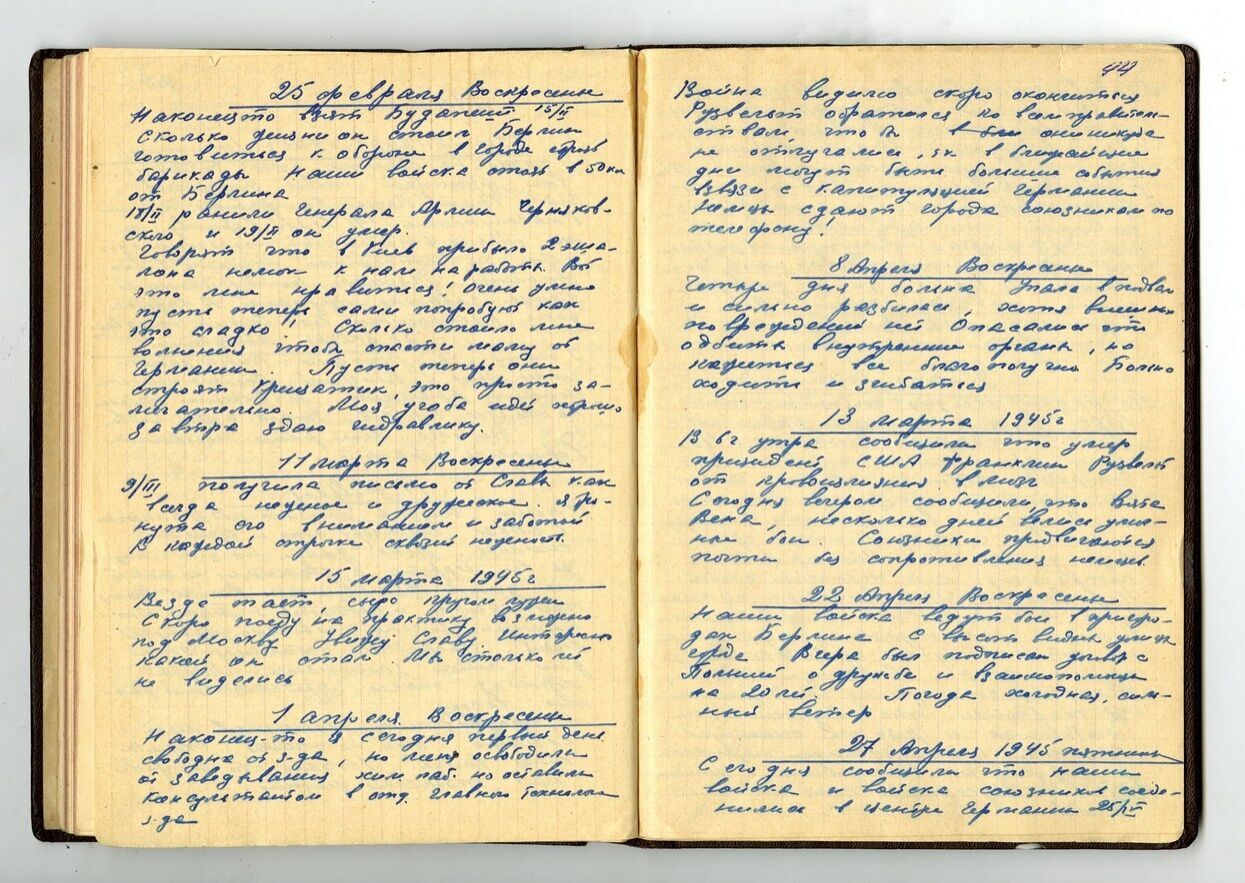 25 февраля Воскресенье
Наконецто взят Будапешт 15/II
Сколько жизни он стоил Берлин
готовиться к обороне в городе строят
барикады Наши войска стоят в 50 км
от Берлина
18/II ранили Генерала Армии Черняхов-
ского и 19/II он умер.
Говорят что в Киев прибыло 2 эша-
лона немок к нам на работы. Вот
это мне нравиться! Очень умно
пусть теперь сами попробуют как
это сладко! Сколько стоило мне
волнения чтобы спасти маму от
Германии. Пусть теперь они
строят Крищатик, это просто за-
мичательно. Моя учоба идет хорошо
завтра здаю гидравлику.
11 марта Воскресенье
9/III получила письмо от Славы как
всегда нежное и дружеское. Я
его вниманием и заботой
В каждой строчке сквозит нежность.
15 марта 1945г
Везде тает, сыро кругом лужи
Скоро поеду на практику возможно
под Москву Увижу Славу Интересно
какой он стал. Мы столько лет
не виделись
1 апреля Воскресенье
Наконец-то я сегодня первый день
свободна от з-да, но меня освободили
от заведывания хим. лаб. но оставили
консультантом в отд. главного технолога
з-да
44
Война видимо скоро окончиться
Рузвельт обратился ко всем правитель-
ствам, что бы они никуда
не отлучались, т.к в ближайшие
дни могут быть большие события
всвязи с капитуляцией Германии
Немцы сдают города союзникам по
телефону!
8 Апреля Воскресенье
Четыре дня больна Упала в подвал
и сильно разбилась, хотя внешних
повреждений нет Опасались что
отбиты внутренние органы, но
кажиться все благополучно Больно
ходить и згибаться
13 марта 1945г
В 6ч утра сообщили что умер
призидент США Франклин Рузвельт
от кровоизлияния в мозг
Сегодня вечером сообщили, что взята
Вена, несколько дней велись улич-
ные бои. Союзники продвигаются
почти без сопротивления немцев.
22 Апреля Воскресенье
Наши войска ведут бои в пригоро-
дах Берлина С высот видны улицы
города Вчера был подписан договор с
Польшей о дружбе и взаимопомощи
на 20 лет. Погода холодная, силь-
ный ветер
27 Апреля 1945 пятница
Сегодня сообщили что наши
войска и войска союзников соеде-
нились в центре Германии 25/IV